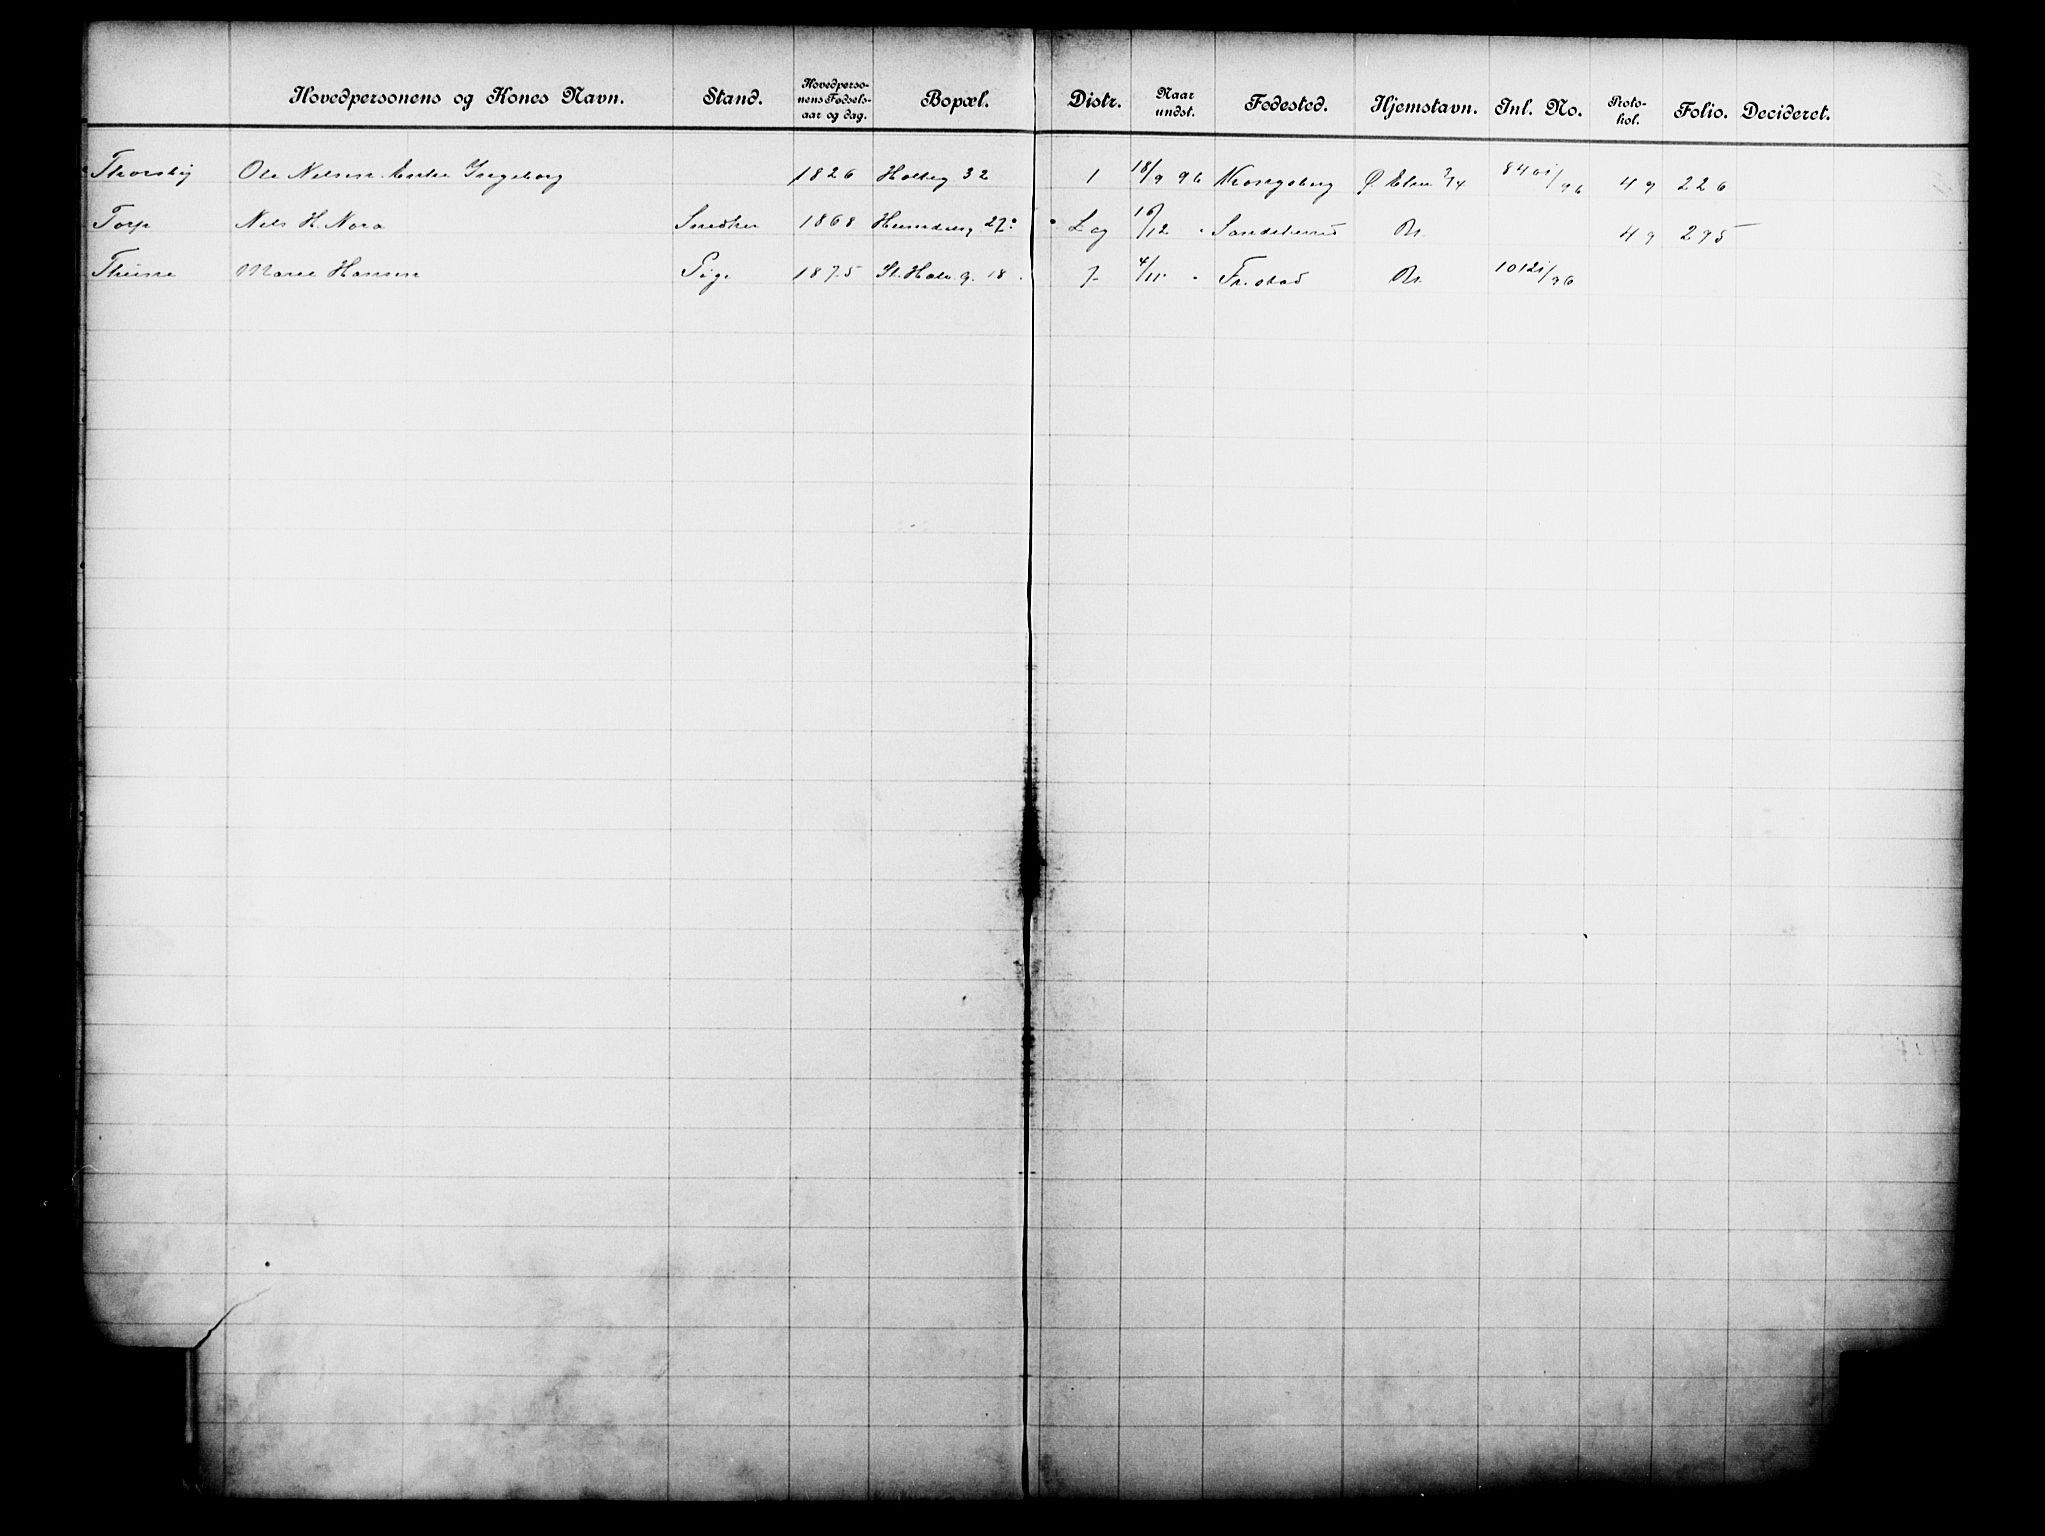 Hovedpersonens og Kones Navn. Stand. Hovedpersonens Fødselsaar og dag. Bopæl. Distr. Naar undst. Fødested. Hjemstavn. Inl. No. Protokol. Folio. Decideret.
Thorsby Ole Nilsen Enke Ingeborg 1826 Holteg 32 1 18/9 96 Kongsberg 8401/96 49 226
Torp Nils H. Nora Snedker 1868 27 16/12 49 295
Marie Hansen Pige 1875 St. Halv. g. 18 7 4/11 Fr.stad 1012/96